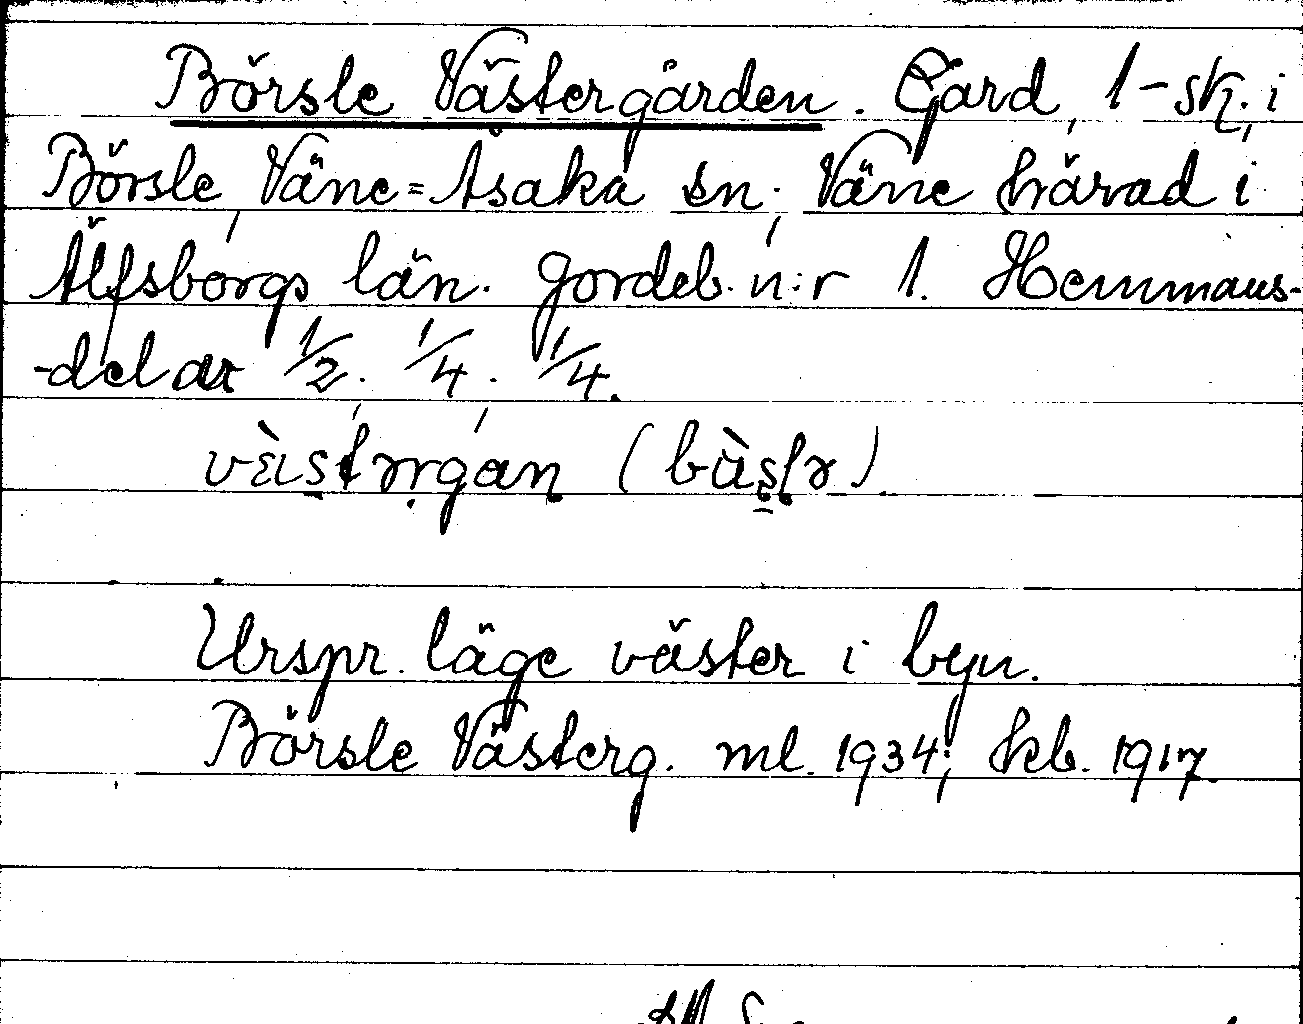 Börsle Västergården. Gård, 1-sk. i
Börsle, Väne=Åsaka sn; Väne härad i
Älfsborgs län. Jordeb. n:r 1. Hemmans-
-delar 1/2, 1/4, 1/4.
Urspr. läge väster i byn.
Börsle Västerg. ml. 1934; kb. 1917.